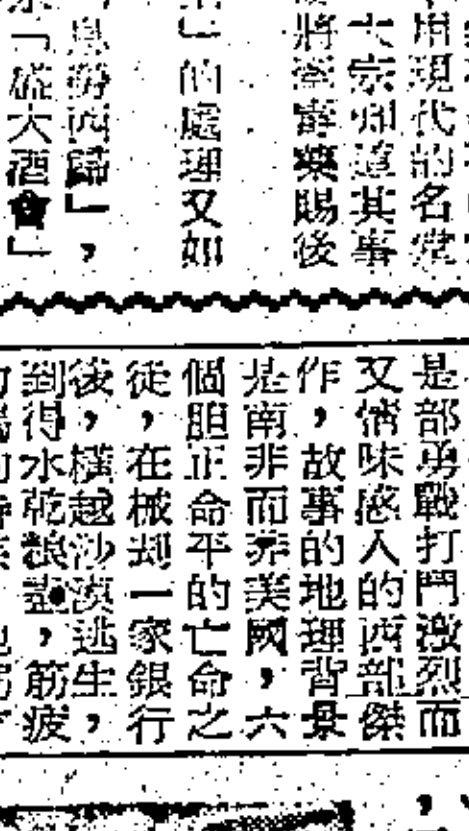 用現代的名堂
大宗師道其事
將
藥賜後
」的處理又如
西歸」，
「盛大酒會」
是部勇戰打鬥激烈而
又情味感人的西部傑
作，故事的地理背景
是南非而非美國，六
個胆正命平的亡命之
徒，在械刧一家銀行
後，橫越沙漠逃生，
到得水乾粮盡，筋疲